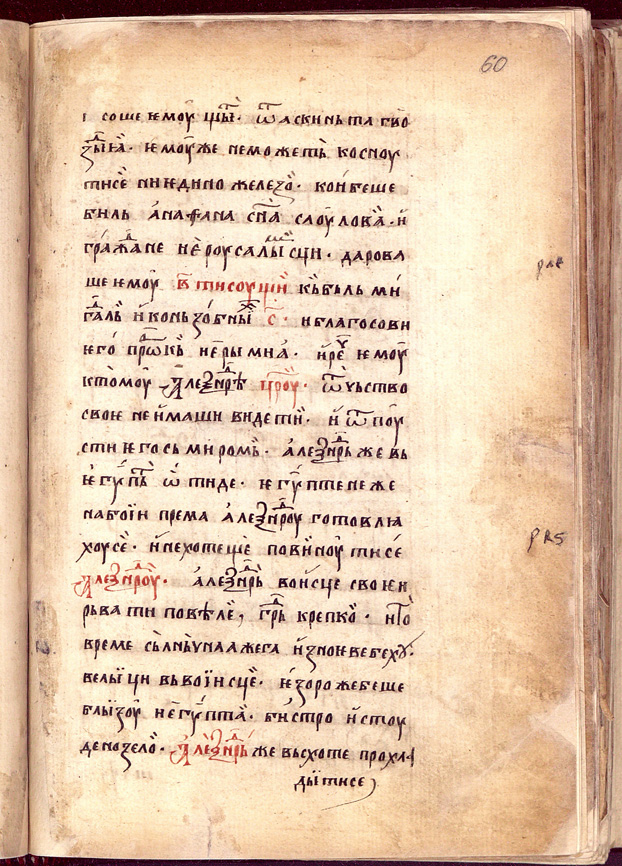 60
і соше ємоу щы҃ть· ѿ аскиньта гво
зыꙗ҃· ємоу же не може ть косноу
тисе ни єдино железо· кои беше
биль анафана сн҃а саоулова· и
гражⷣане иєроусалымⷭсци· дарова
ше ємоу в҃ тисоущи къбыль ми
сⷣаль и конь зобныⷯ с҃· и благосови
єго прⷪ҇къ иєрымиа· и реⷱ ємоу
к томоу алеѯⷣндрѣ црⷭоу· ѿчьство
своє не имаши видети· и ѿпоу
сти єго сь миромь· алеѯⷣндрь же вь
єгупьⷮ ѿтиде· єгуптене же
на бои прѣма алеѯⷣндроу готовлꙗ
хоу се· и не хотеще повиноути се
алеѯⷣндроу· алеѯⷣндрь воисце своє и
рьвати повѣле, граⷣ крепко· и тⷪ
време сльньчнаа жега и зноиве бехꙋ·
велыци вь воинсце· єзоро же беше
блызоу иєгупта· бистро и стоу
дено зело· алеѯⷣндрь же вьсхоте прохла
дытисе
рлє
рлѕ